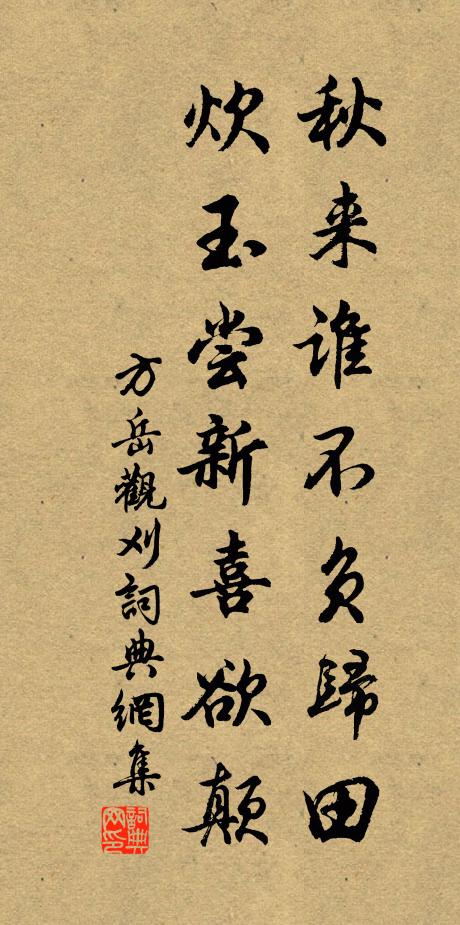 秋来谁不负歸田
炊玉尝新喜欲颠
方岳觀刈詞典網集
詞典網印